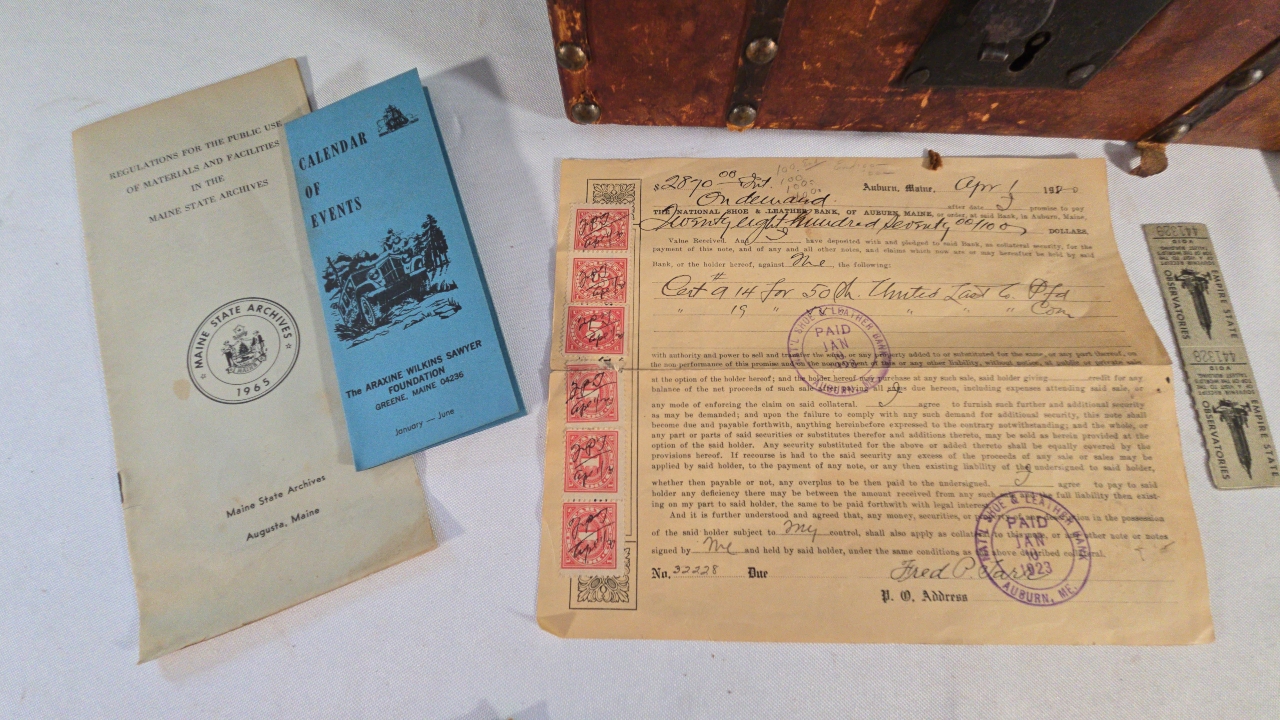 REGULATIONS FOR THE PUBLIC USE
OF MATERIALS AND FACILITIES
IN THE
MAINE STATE ARCHIVES
MAINE STATE ARCHIVES
1965
Maine State Archives
Augusta, Maine
CALENDAR
OF
EVENTS
The ARAXINE WILKINS SAWYER
FOUNDATION
GREENE, MAINE 04236
January — June
$2870 00 Int.
Auburn, Maine, Apr 1 19
On demand after date I promise to pay
THE NATIONAL SHOE & LEATHER BANK, OF AUBURN, MAINE, or order, at said Bank, in Auburn, Maine,
Twenty eight hundred seventy 00/100 DOLLARS,
Value Received. And I have deposited with and pledged to said Bank, as collateral security, for the
payment of this note, and of any and all other notes, and claims which now are or may hereafter be held by said
Bank, or the holder hereof, against Me the following:
Cert # 914 for 50 sh. United Co. Pfd
" 19 " " " " Com
with authority and power to sell and transfer the same or any property added to or substituted for the same, or any part thereof, on
the non performance of this promise and or the nonpayment of the same or any other liability, without notice, at public or private sale
at the option of the holder hereof; and the holder hereof may purchase at any such sale, said holder giving credit for any
balance of the net proceeds of such sale after paying all sums due hereon, including expenses attending said sale, or
any mode of enforcing the claim on said collateral. I agree to furnish such further and additional security
as may be demanded; and upon the failure to comply with any such demand for additional security, this note shall
become due and payable forthwith, anything hereinbefore expressed to the contrary notwithstanding; and the whole, or
any part or parts of said securities or substitutes therefor and additions thereto, may be sold as herein provided at the
option of the said holder. Any security substituted for the above or added thereto shall be equally covered by the
provisions hereof. If recourse is had to the said security any excess of the proceeds of any sale or sales may be
applied by said holder, to the payment of any note, or any then existing liability of the undersigned to said holder,
whether then payable or not, any overplus to be then paid to the undersigned. I agree to pay to said
holder any deficiency there may be between the amount received from any such sale and the full liability then exist-
ing on my part to said holder, the same to be paid forthwith with legal interest.
And it is further understood and agreed that, any money, securities, or property in the possession
of the said holder subject to My control, shall also apply as collateral to this note, or any other note or notes
signed by Me and held by said holder, under the same conditions as the above described collateral.
No. 32228 Due
Fred P.
P. O. Address
NAT'L SHOE & LEATHER BANK
PAID
JAN
AUBURN, ME.
NAT'L SHOE & LEATHER BANK
PAID
JAN
10
1923
AUBURN, ME.
441328
VOID
SOUVENIR RECEIPT
EMPIRE STATE
OBSERVATORIES
441328
VOID
SOUVENIR RECEIPT
EMPIRE STATE
OBSERVATORIES